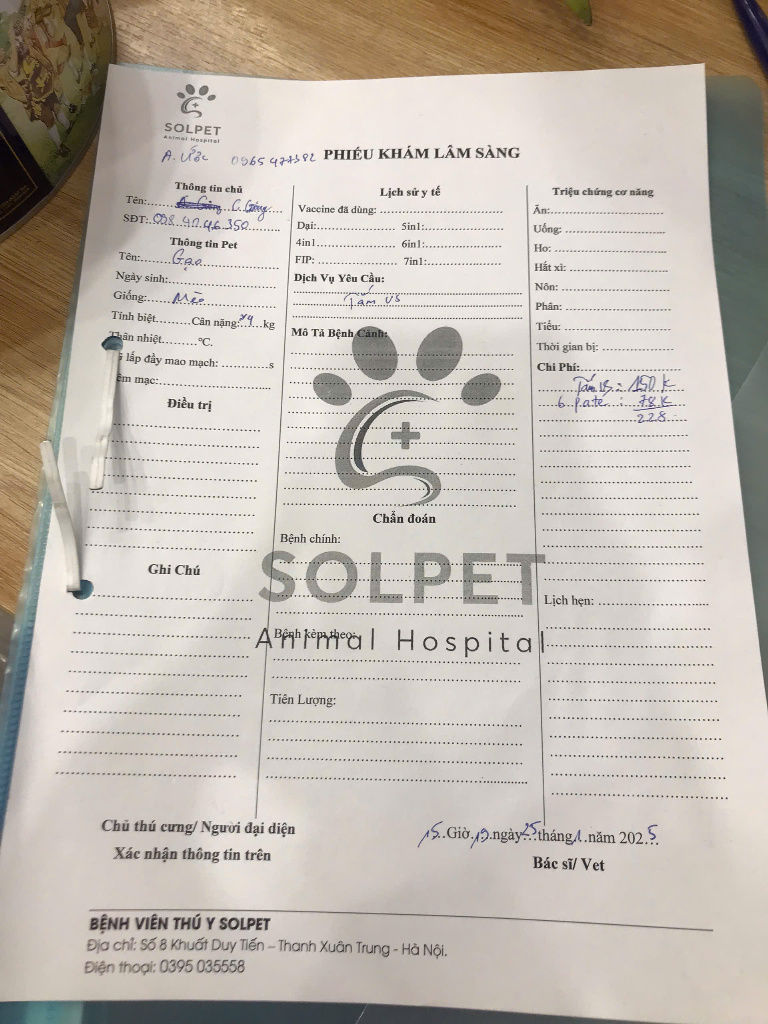 SOLPET
Animal Hospital
A. Ước 0965 477382
PHIẾU KHÁM LÂM SÀNG
Thông tin chủ
Tên:..... C. ......
SĐT:.098 47.46 350.....
Thông tin Pet
Tên:......Gạo......
Ngày sinh:......
Giống:......Mèo......
Tính biệt.........Cân nặng:x4...kg
Thân nhiệt.........°C.
lấp đầy mao mạch: ............s
êm mạc:......
Điều trị
Ghi Chú
Lịch sử y tế
Vaccine đã dùng: ......
Dại:...... 5in1:......
4in1...... 6in1:......
FIP:...... 7in1:......
Dịch Vụ Yêu Cầu:
Tắm vs
Mô Tả Bệnh Cảnh:
Chẩn đoán
Bệnh chính:
SOLPET
Bệnh kèm theo:
Animal Hospital
Tiên Lượng:
Triệu chứng cơ năng
Ăn:......
Uống: ......
Ho: ......
Hắt xì: ......
Nôn: ......
Phân: ......
Tiểu: ......
Thời gian bị: ......
Chi Phí:......
Tắm vs : 150 K
6 patê : 78 K
228
Lịch hẹn: ......
Chủ thú cưng/ Người đại diện
Xác nhận thông tin trên
15..Giờ.19.ngày25.tháng.1..năm 2025
Bác sĩ/ Vet
BỆNH VIÊN THÚ Y SOLPET
Địa chỉ: Số 8 Khuất Duy Tiến – Thanh Xuân Trung - Hà Nội.
Điện thoại: 0395 035558